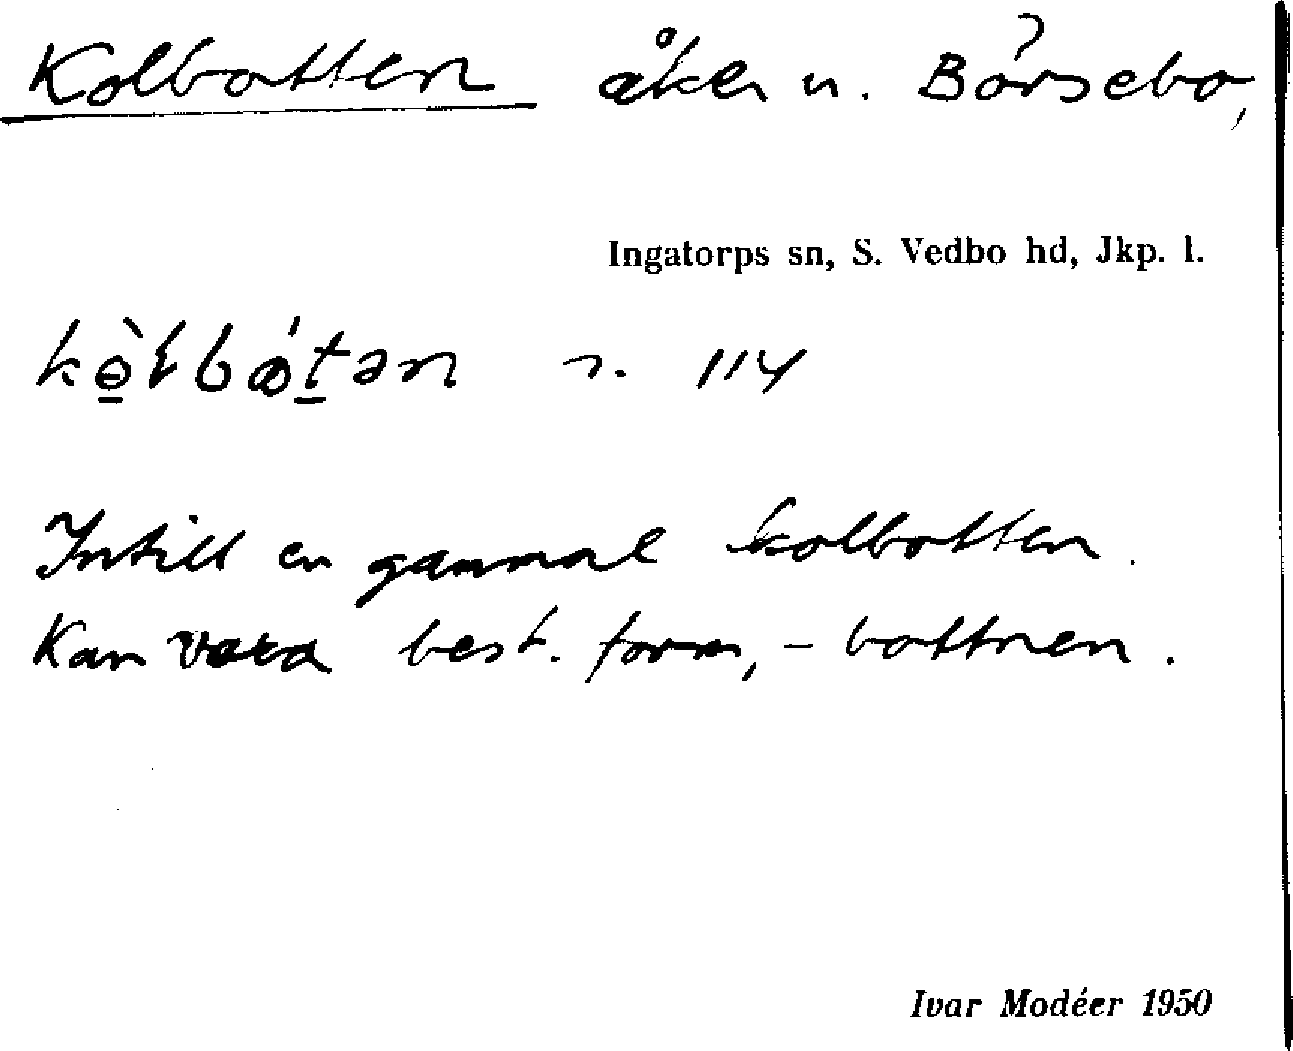 Kolbotten åker n. Börsebo,
Ingatorps sn, S. Vedbo hd, Jkp. l.
114
Intill en gammal kolbotten.
Kan vara best. form, - bottnen.
Ivar Modéer 1950